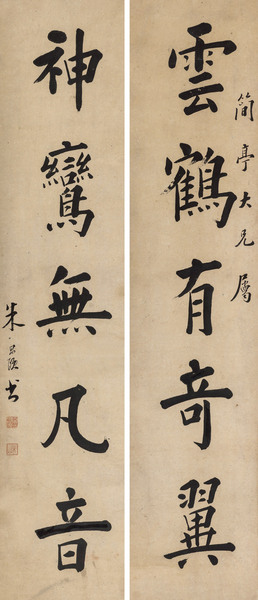 雲鶴有奇翼
簡亭大兄屬
神鸞無凡音
朱昌頤書